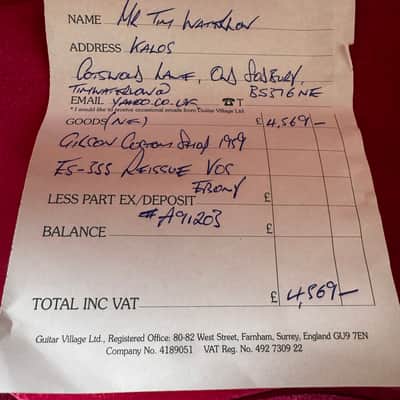 NAME MR TIM WATERLOW
ADDRESS KALOS
COTSWOLD LANE, OLD SODBURY,
TIMWATERLOW@ BS37 6NE
EMAIL YAHOO.CO.UK ☎T
* I would like to receive occasional emails from Guitar Village Ltd.
GOODS (NE) £ 4,569—
GIBSON CUSTOM SHOP 1959
ES-355 REISSUE VOS
EBONY
LESS PART EX/DEPOSIT £
#A911203
BALANCE £
TOTAL INC VAT £ 4,569—
Guitar Village Ltd., Registered Office: 80-82 West Street, Farnham, Surrey, England GU9 7EN
Company No. 4189051 VAT Reg. No. 492 7309 22